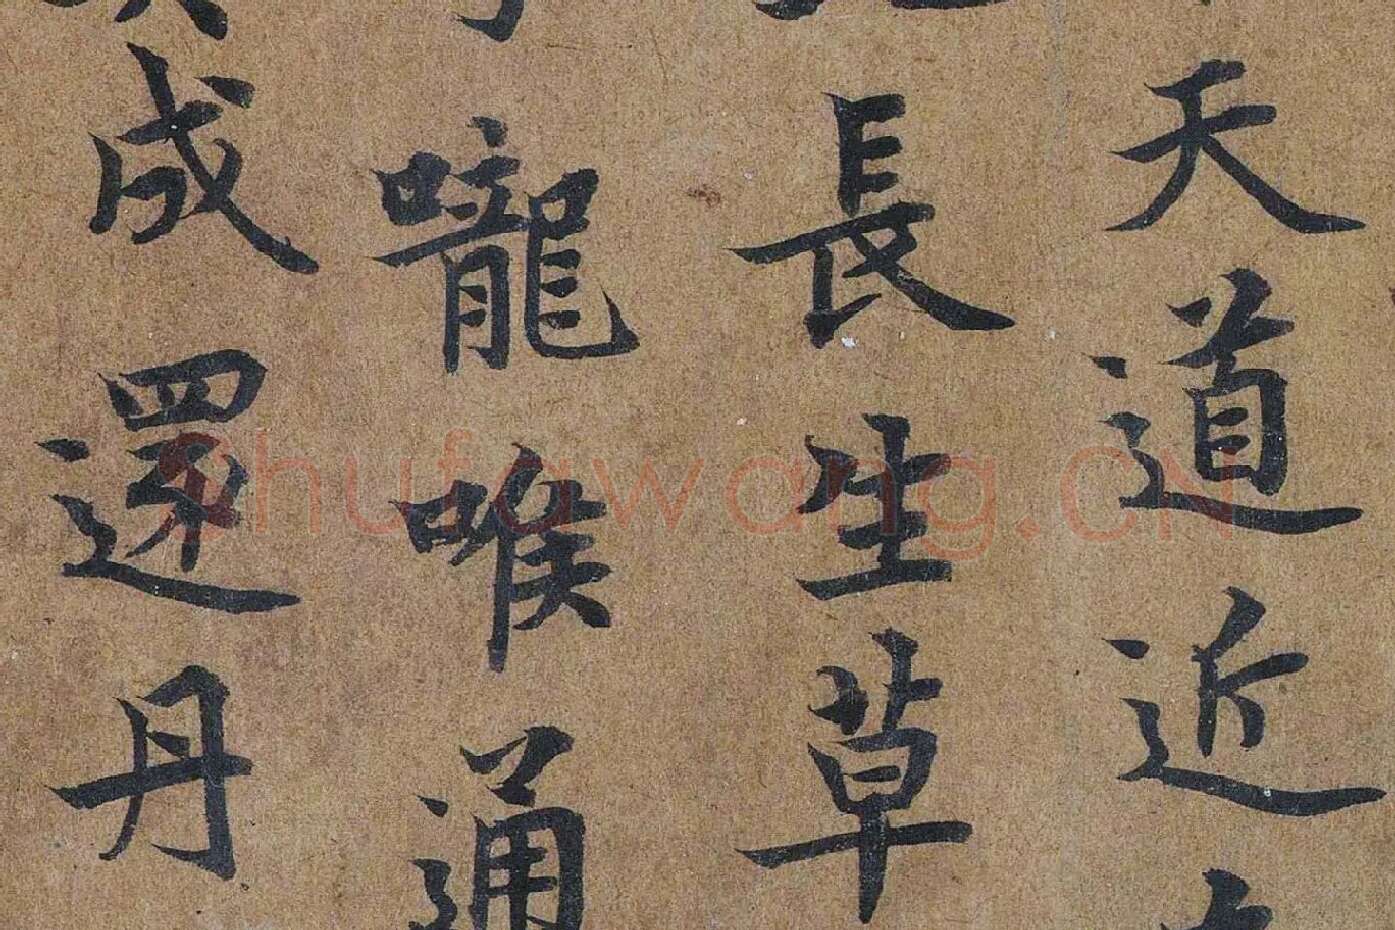 天道近
長生草
嚨喉通
成還丹
Shufawang.CN